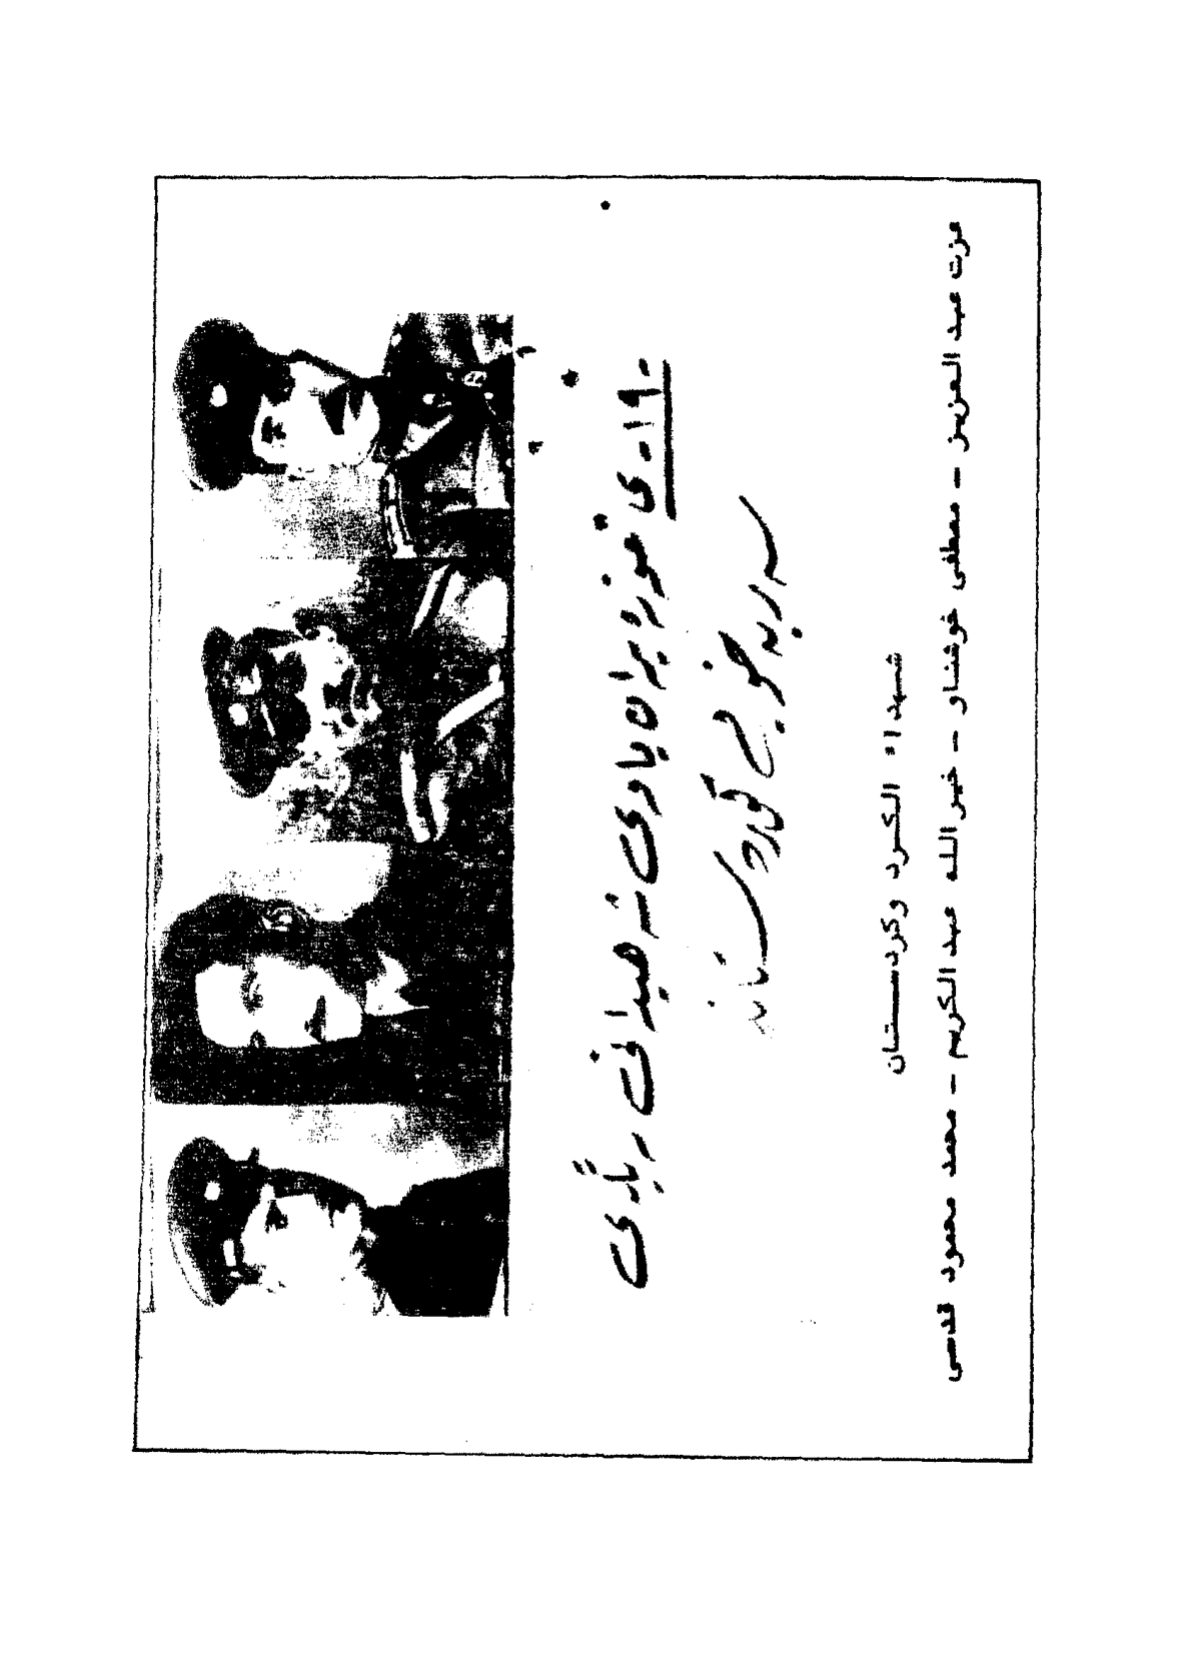 ١٩ـ ی حوزه‌یران یادی شه‌هیدانی رێگای
سه‌ربه‌خۆیی کوردستانه
شهداء الكرد وكردستان
عزت عبد العزيز - مصطفى خوشناو - خير الله عبد الكريم - محمد محمود قدسي